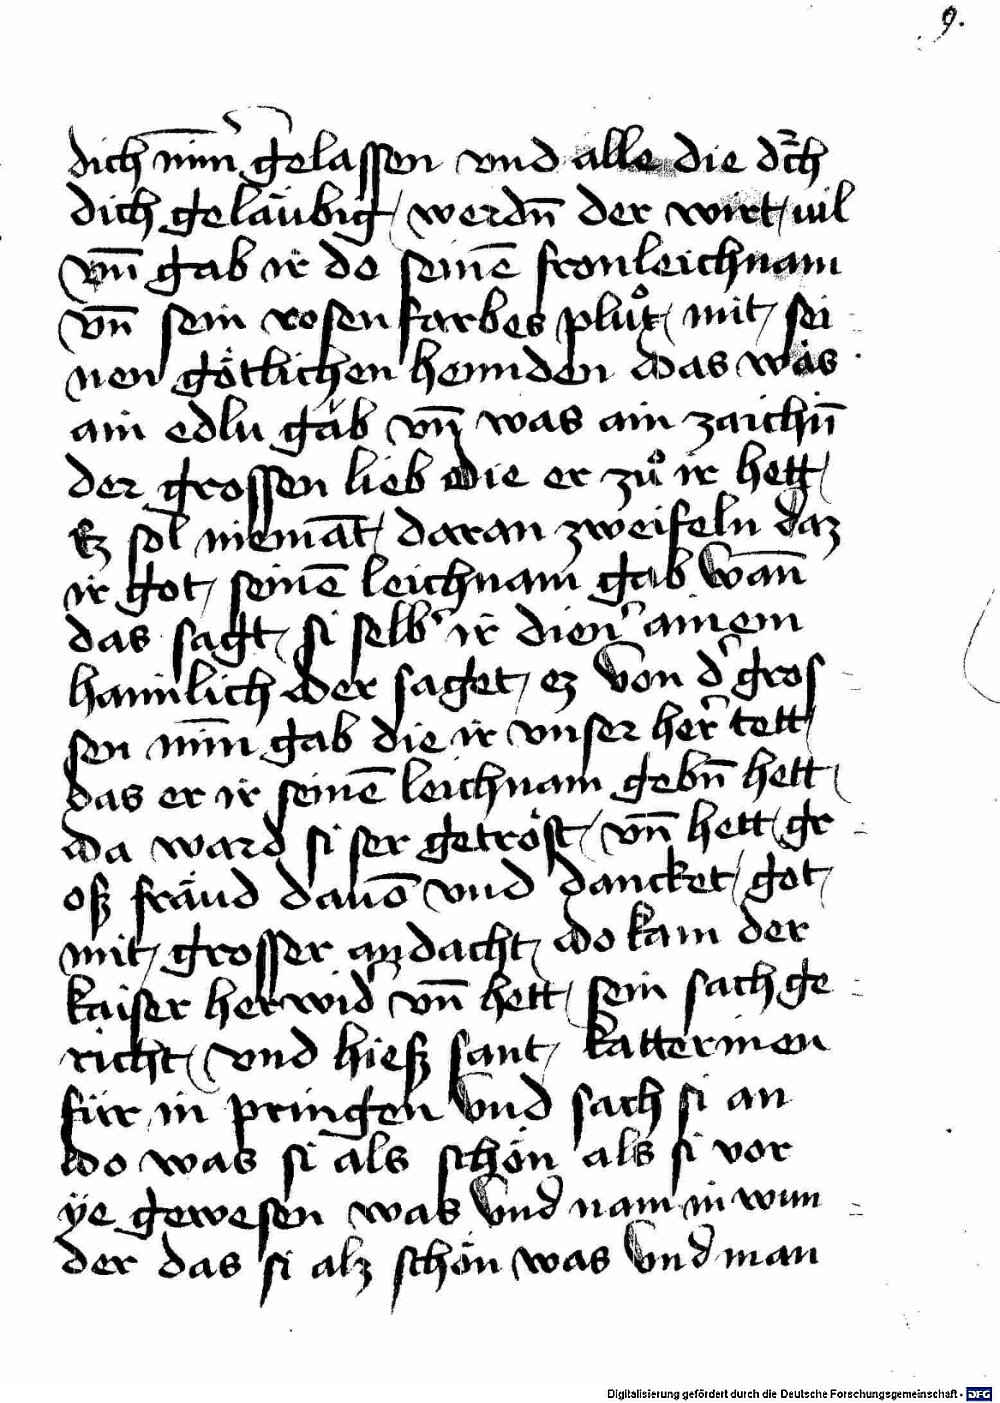 9.
dich nim̄er gelassen vnd alle die dr̄ch
dich geläubig werdn̄ der wirt uil
vn̄ gab ir do seinē fronleichnam
vn̄ sein rosenfarbes plůt mit sei
nen götlichen hennden das was
ain edlu gab vn̄ was ain zaichn̄
der grossen lieb die er zů ir hett
Ez sol niemāt daran zweifeln daz
ir got seinē leichnam gab wan̄
das sagt si selb' ir dien' ainem
haimlich der saget ez von d' gros
sen mīn gab die ir vnser her' tett
das er ir seinē leichnam gebn̄ hett
da ward si ser getröst vn̄ hett gr
oß fräud dauō vnd dancket got
mit grosser andacht do kam der
kaiser herwid' vn̄ hett sein sach ge
richt vnd hieß sant kattermen
für in pringen vnd sach si an
do was si als schön als si vor
ÿe gewesen was vnd nam in wun
der das si alz schön was vnd man
Digitalisierung gefördert durch die Deutsche Forschungsgemeinschaft - DFG